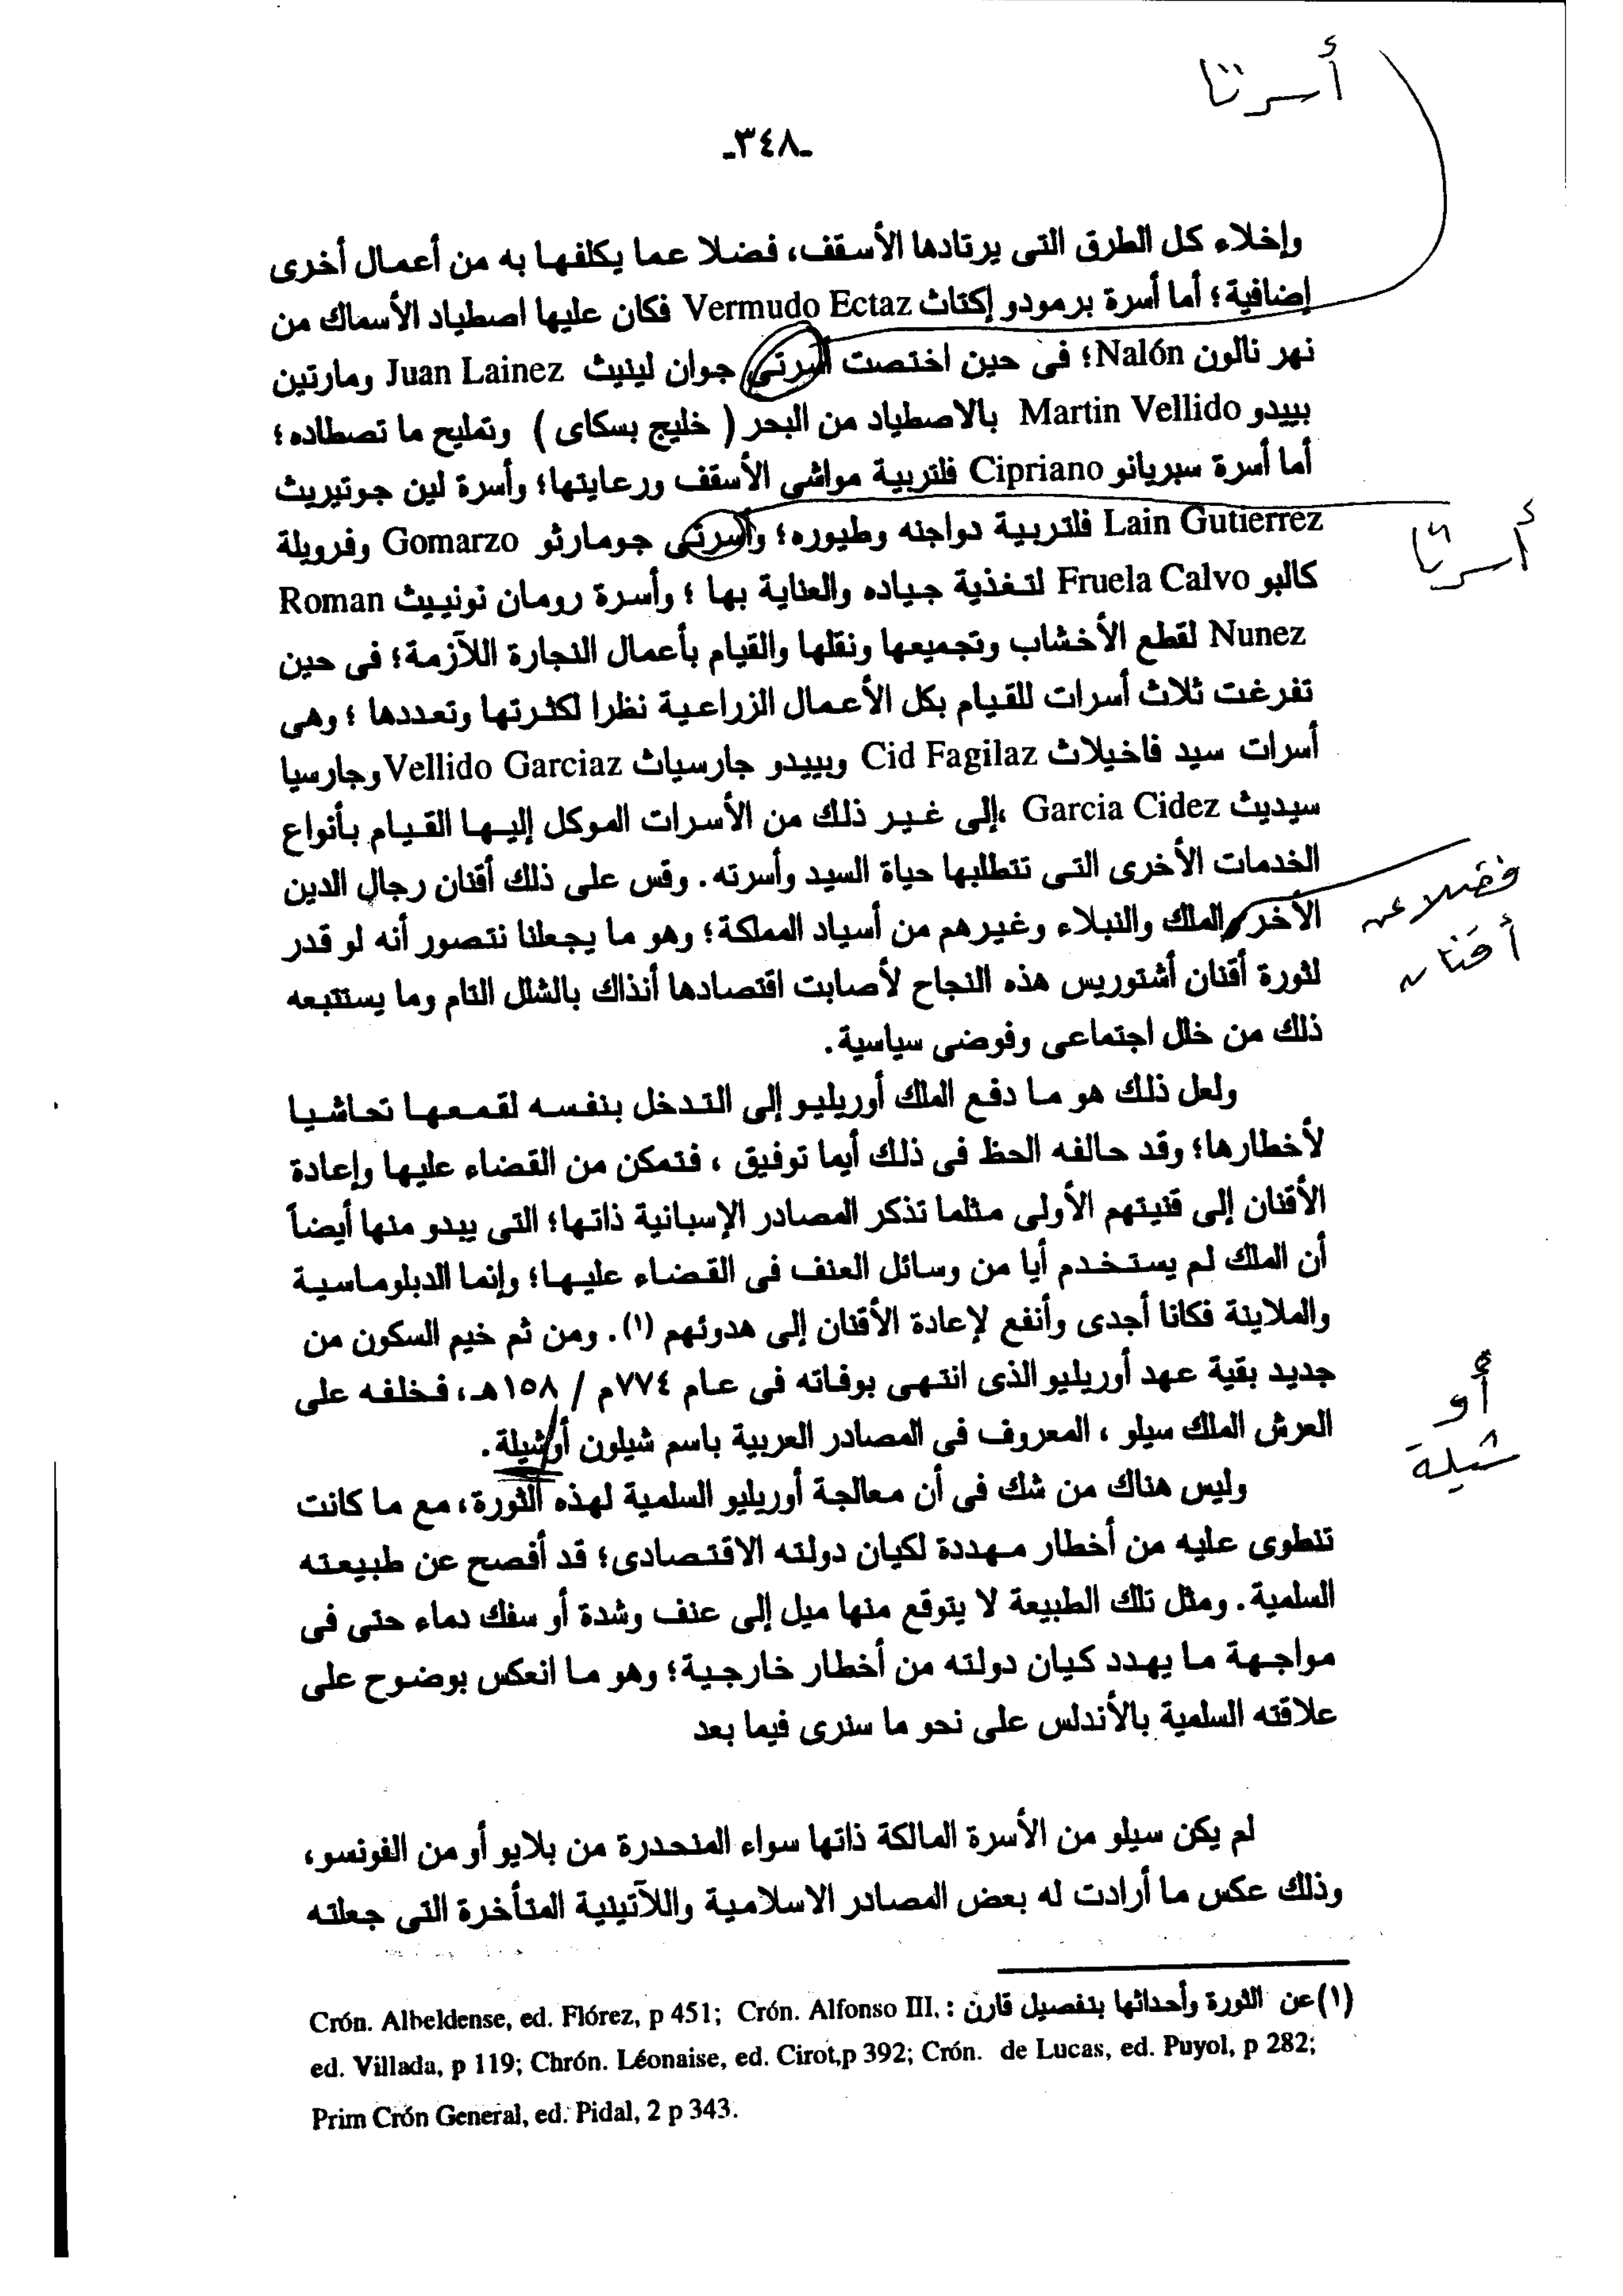 أسرتا
-٣٤٨-
وإخلاء كل الطرق التى يرتادها الأسقف، فضلا عما يكلفها به من أعمال أخرى
إضافية؛ أما أسرة برمودو إكتاث Vermudo Ectaz فكان عليها اصطياد الأسماك من
نهر نالون Nalón؛ فى حين اختصت أسرتى جوان لينيث Juan Lainez ومارتين
بييدو Martin Vellido بالاصطياد من البحر ( خليج بسكاى ) وتمليح ما تصطاده؛
أما أسرة سبريانو Cipriano فلتربية مواشى الأسقف ورعايتها؛ وأسرة لين جوتيريث
Lain Gutierrez فلتربية دواجنه وطيوره؛ وأسرتى جومارثو Gomarzo وفرويلة
أسرتا
كالبو Fruela Calvo لتغذية جياده والعناية بها ؛ وأسرة رومان نونييث Roman
Nunez لقطع الأخشاب وتجميعها ونقلها والقيام بأعمال النجارة اللآزمة؛ فى حين
تفرغت ثلاث أسرات للقيام بكل الأعمال الزراعية نظرا لكثرتها وتعددها ؛ وهى
أسرات سيد فاخيلاث Cid Fagilaz وبييدو جارسياث Vellido Garciaz وجارسيا
سيديث Garcia Cidez ،إلى غير ذلك من الأسرات الموكل إليها القيام بأنواع
الخدمات الأخرى التى تتطلبها حياة السيد وأسرته. وقس على ذلك أقنان رجال الدين
فضلا عن
الأخر والملك والنبلاء وغيرهم من أسياد المملكة؛ وهو ما يجعلنا نتصور أنه لو قدر
أقنان
لثورة أقنان أشتوريس هذه النجاح لأصابت اقتصادها أنذاك بالشلل التام وما يستتبعه
ذلك من خلل اجتماعى وفوضى سياسية.
ولعل ذلك هو ما دفع الملك أوريليو إلى التدخل بنفسه لقمعها تحاشيا
لأخطارها؛ وقد حالفه الحظ فى ذلك أيما توفيق ، فتمكن من القضاء عليها وإعادة
الأقنان إلى قنيتهم الأولى مثلما تذكر المصادر الإسبانية ذاتها؛ التى يبدو منها أيضاً
أن الملك لم يستخدم أيا من وسائل العنف فى القضاء عليها؛ وإنما الدبلوماسية
والملاينة فكانا أجدى وأنفع لإعادة الأقنان إلى هدوئهم (١). ومن ثم خيم السكون من
جديد بقية عهد أوريليو الذى انتهى بوفاته فى عام ٧٧٤م / ١٥٨هـ، فخلفه على
أو
العرش الملك سيلو ، المعروف فى المصادر العربية باسم شيلون أوشيلة.
شيلة
وليس هناك من شك فى أن معالجة أوريليو السلمية لهذه الثورة، مع ما كانت
تنطوى عليه من أخطار مهددة لكيان دولته الاقتصادى؛ قد أفصح عن طبيعته
السلمية. ومثل تلك الطبيعة لا يتوقع منها ميل إلى عنف وشدة أو سفك دماء حتى فى
مواجهة ما يهدد كيان دولته من أخطار خارجية؛ وهو ما انعكس بوضوح على
علاقته السلمية بالأندلس على نحو ما سنرى فيما بعد
لم يكن سيلو من الأسرة المالكة ذاتها سواء المنحدرة من بلايو أو من الفونسو،
وذلك عكس ما أرادت له بعض المصادر الاسلامية واللآتينية المتأخرة التى جعلته
(١)عن الثورة وأحداثها بتفصيل قارن : Crón. Albeldense, ed. Flórez, p 451; Crón. Alfonso III,
ed. Villada, p 119; Chrón. Léonaise, ed. Cirot,p 392; Crón. de Lucas, ed. Puyol, p 282;
Prim Crón General, ed. Pidal, 2 p 343.